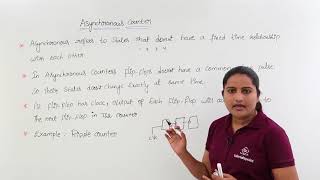 Asynchronous Counter
* Asynchronous refers to states that doesnt have a fixed time relationship
with each other.
* In Asynchronous Counters flip flops doesnt have a common clk pulse
so their states doesnt change exactly at same time.
* 1st flip flop has clock, output of each flip flop will act as
the next flip flop in the counter.
* Example: Ripple counter
clk